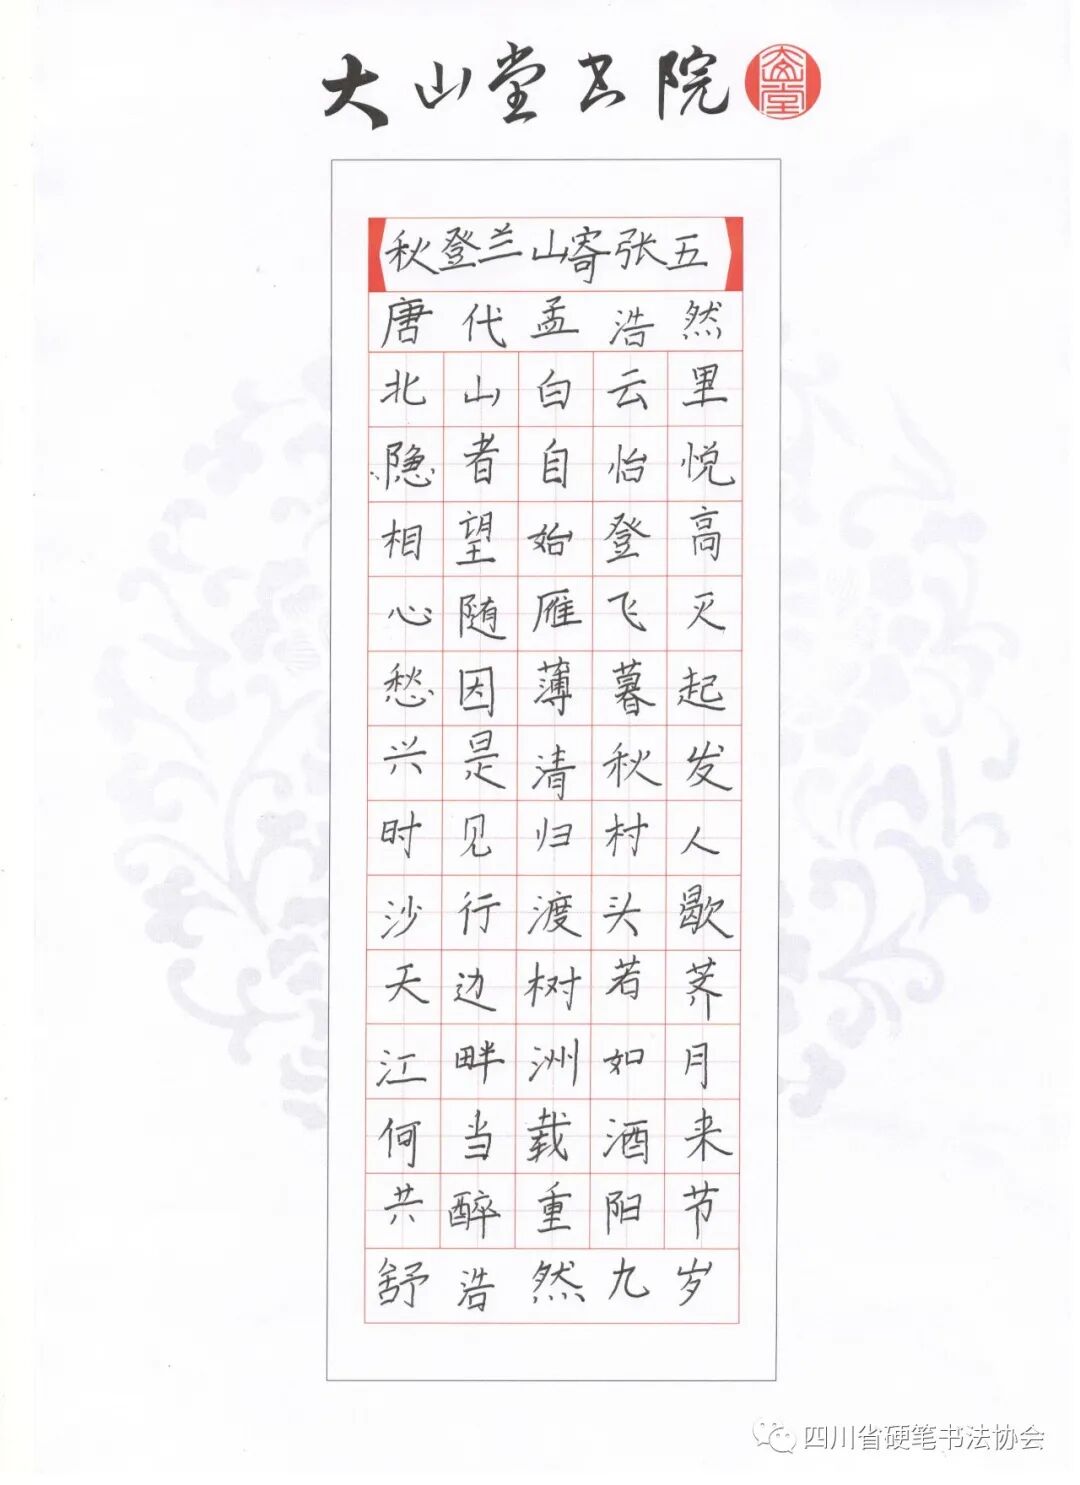 大山堂书院
秋登兰山寄张五
唐代孟浩然
北山白云里
隐者自怡悦
相望始登高
心随雁飞灭
愁因薄暮起
兴是清秋发
时见归村人
沙行渡头歇
天边树若荠
江畔洲如月
何当载酒来
共醉重阳节
舒浩然九岁
四川省硬笔书法协会